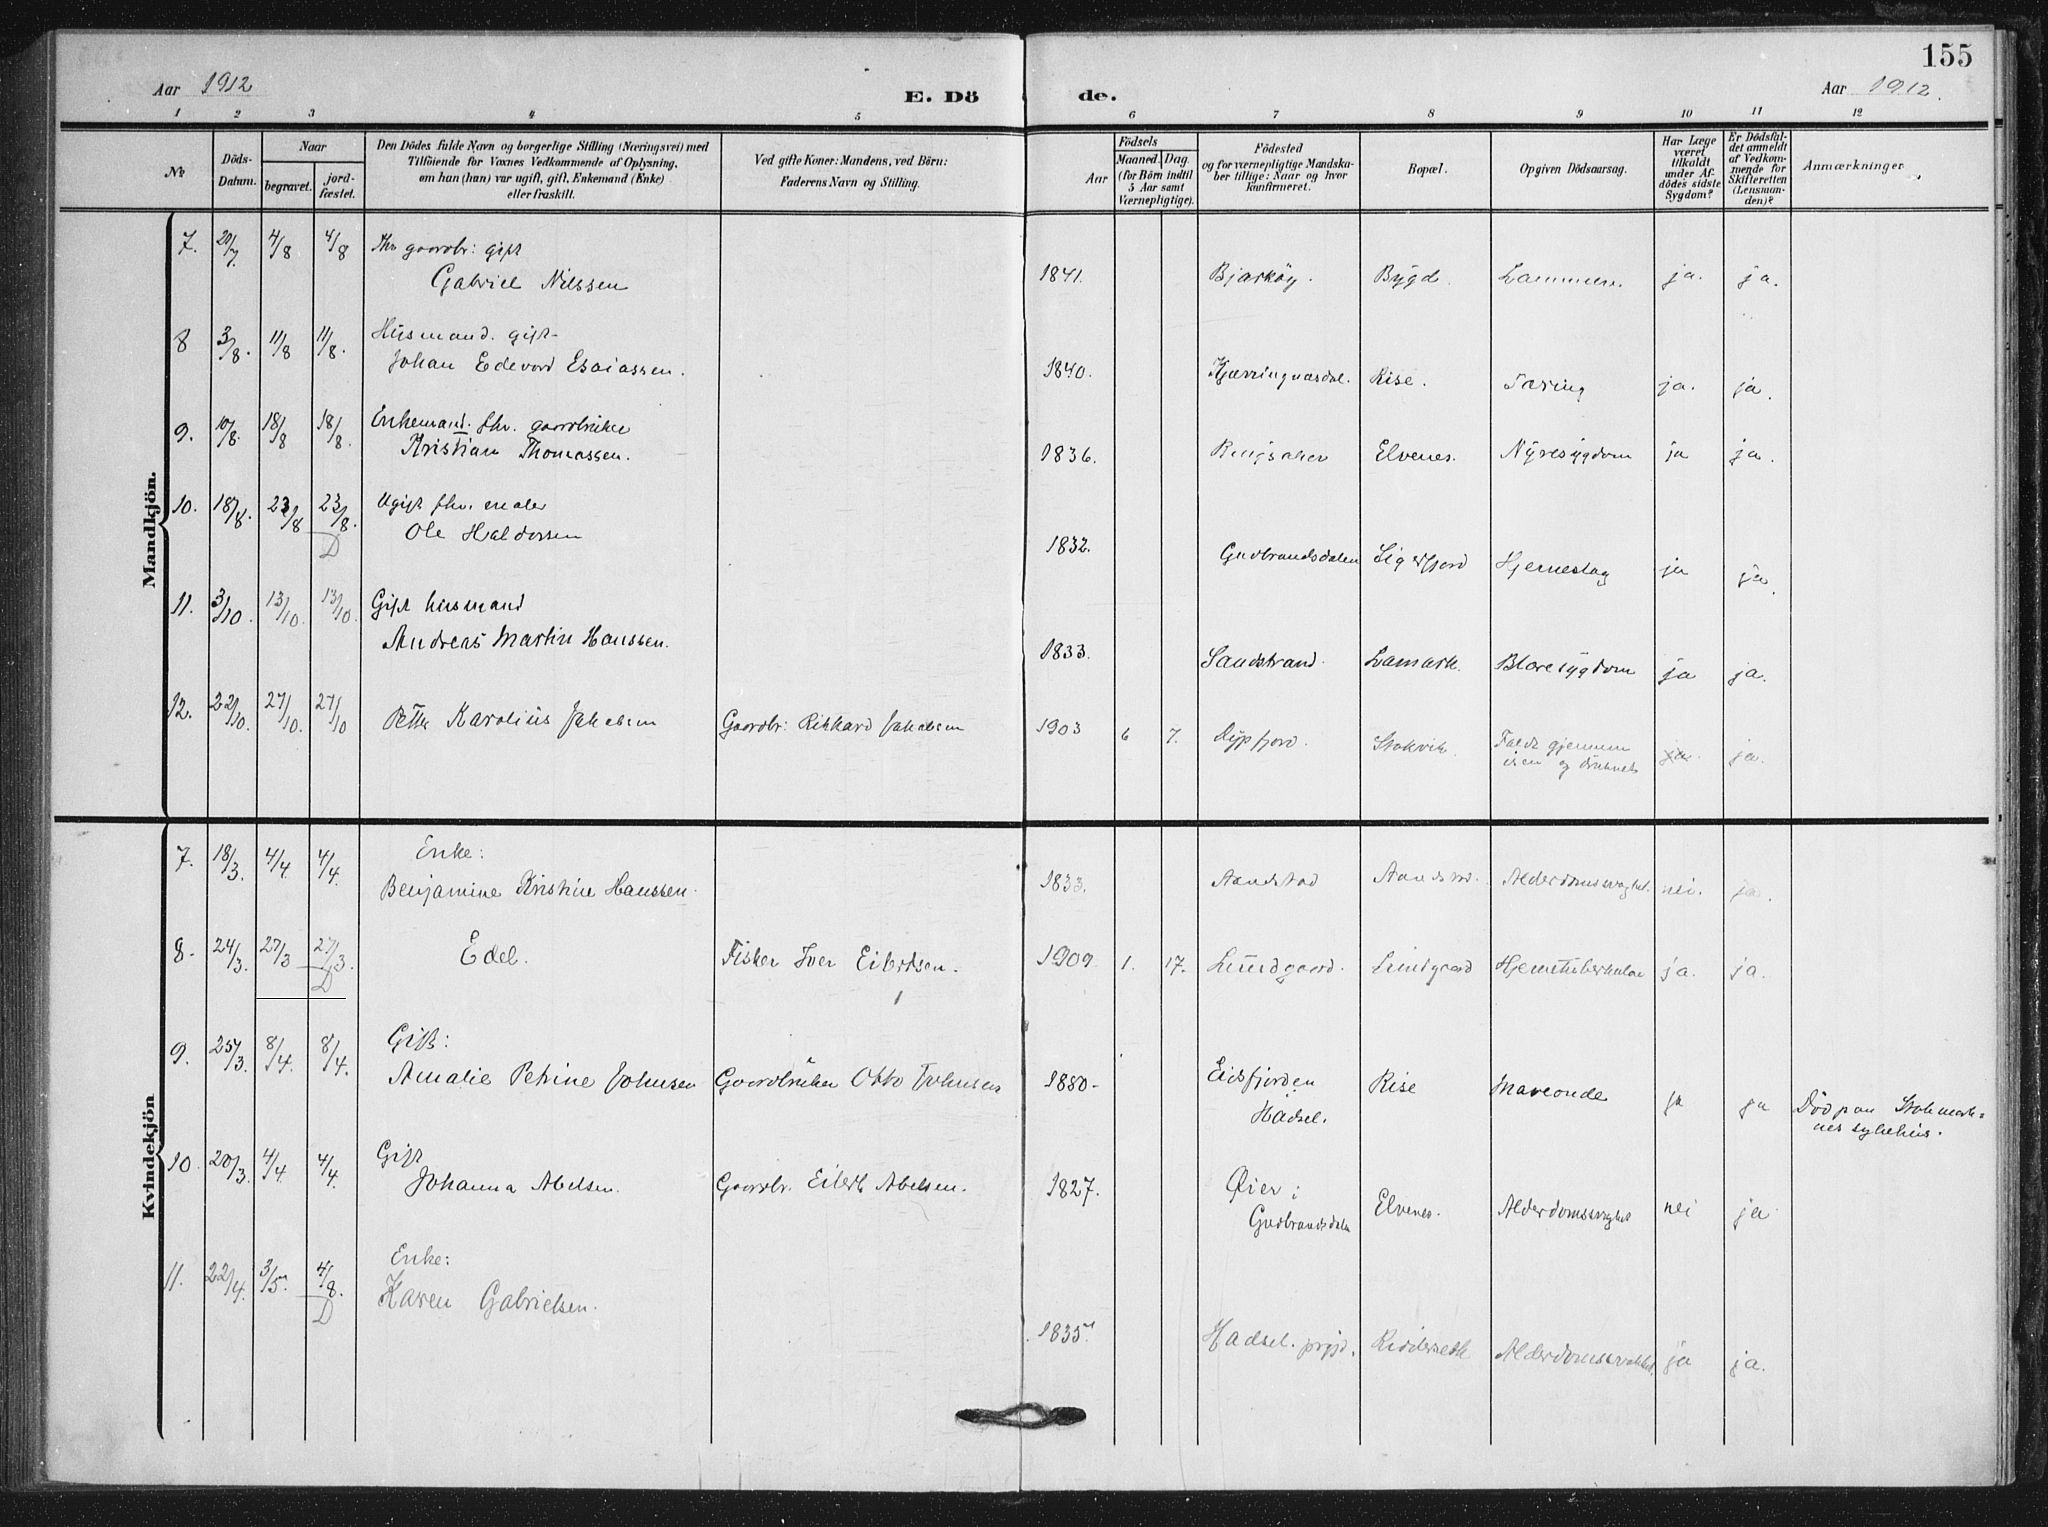 155
Aar 1912 E. Dö de. Aar 1912.
1 2 3 4 5 6 7 8 9 10 11 12
№
Döds-Datum.
Naar
begravet.
jordfæstet.
Den Dödes fulde Navn og borgerlige Stilling (Næringsvei) med
Tilföiende for Voxnes Vedkommende af Oplysning,
om han (hun) var ugift, gift, Enkemand (Enke)
eller fraskilt.
Ved gifte Koner: Mandens, ved Börn:
Faderens Navn og Stilling.
Födsels
Aar
Maaned. Dag.
(for Börn indtil
5 Aar samt
Værnepligtige).
Födested
og for værnepligtige Mandska-
ber tillige: Naar og hvor
konfirmeret.
Bopæl.
Opgiven Dödsaarsag.
Har Læge
været
tilkaldt
under Af-
dödes sidste
Sygdom?
Er Dödsfal-
det anmeldt
af Vedkom-
mende for
Skifteretten
(Lensman-
den)?
Anmærkninger
Mandkjön.
7. 20/7. 4/8 4/8 gaardbr: gift
Gabriel Nilssen 1841. Bjarköy. Bygd. ja. ja.
8 3/8. 11/8 11/8. Husmand. gift-
Johan Edevard Esaiassen. 1840. Rise. Tæring ja. ja.
9. 10/8. 18/8 18/8. Enkemand. fhv. gaardbruker
Kristian Thomassen. 1836. Ringsaker Elvenes. Nyresygdom ja ja.
10. 18/8. 23/8 23/8. D Ugift fhv. maler
Ole Haldorsen 1832. Gudbrandsdalen Sigerfjord Hjerneslag ja ja.
11. 3/10. 13/10. 13/10. Gift husmand
Andreas Martin Hanssen. 1833. Sandstrand. Lamark. Blæresygdom ja ja.
12. 22/10. 27/10. 27/10 Petter Karolius Jakobsen Gaardbr: Rikkard Jakobsen 1903 6 7. Dypfjord. Stokvik. Faldt gjennem
isen og druknet ja. ja.
Kvindekjön
7. 18/3. 4/4. 4/4. Enke:
Benjamine Kristine Hanssen. 1833. Aandstad Aandstad. Alderdomssvaghet. nei. ja.
8. 24/3. 27/3 27/3. D Edel. Fisker Iver Eilertsen. 1909. 1. 17. Lundgaard. Lundgaard Hjernetuberkulose ja. ja.
9. 25/3. 8/4. 8/4. Gift:
Amalie Petrine Johnsen Gaardbruker Otto Johnsen 1880- Eidsfjorden
Hadsel. Rise ja ja Död paa Stokmark-
nes sykehus.
10. 20/3. 4/4 4/4. Gift
Johanna Abelsen. Gaardbr. Eilert Abelsen. 1827. Øier i
Gudbrandsdalen Elvenes. Alderdomssvaghet nei ja
11. 22/4. 3/5. 4/8. D Enke:
Karen Gabrielsen. 1835. Hadsel. prgjd. Alderdomssvakhet. ja ja.